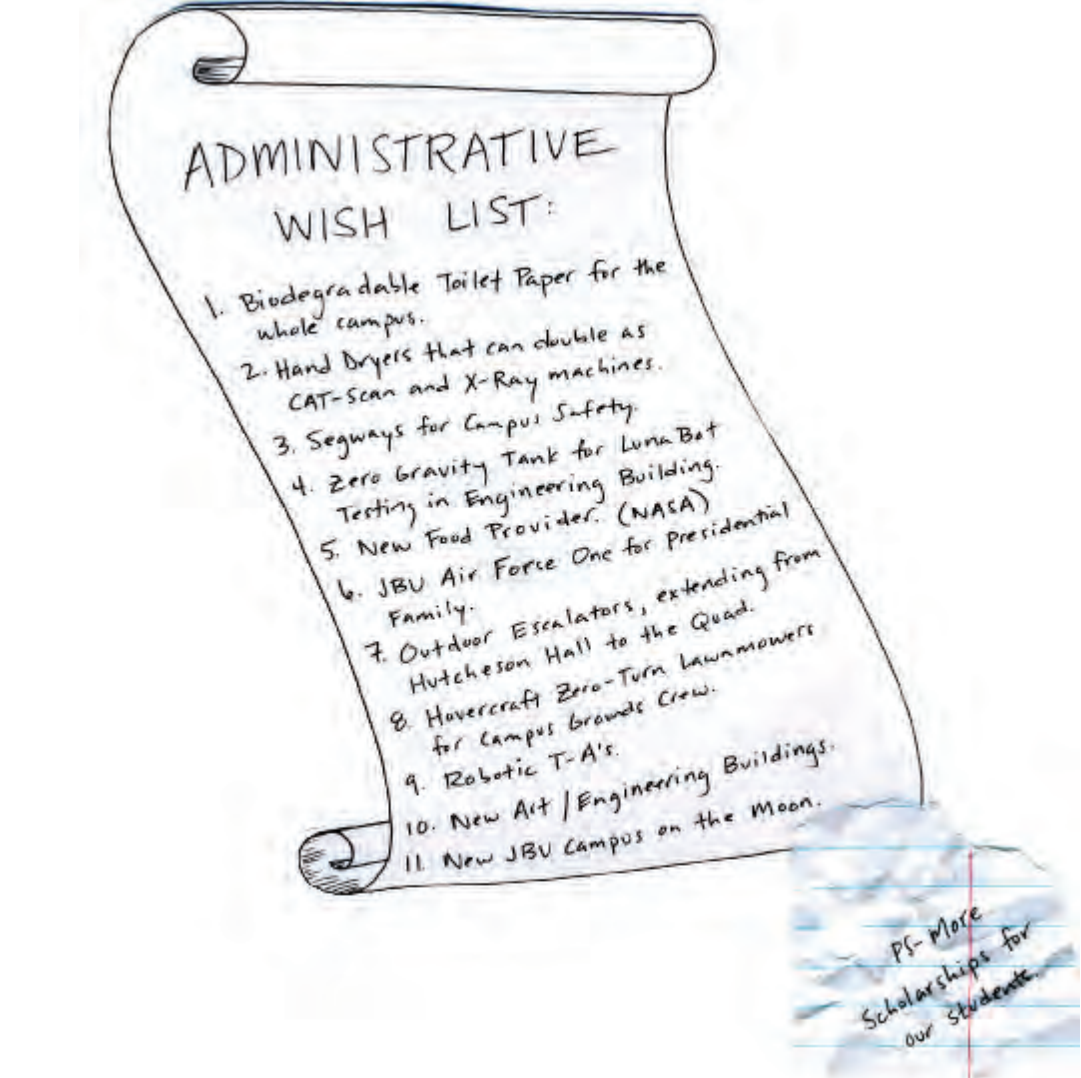 ADMINISTRATIVE
WISH LIST:
1. Biodegradable Toilet Paper for the
whole campus.
2. Hand Dryers that can double as
CAT-Scan and X-Ray machines.
3. Segways for Campus Safety.
4. Zero Gravity Tank for LunaBot
Testing in Engineering Building.
5. New Food Provider. (NASA)
6. JBU Air Force One for Presidential
Family.
7. Outdoor Escalators, extending from
Hutcheson Hall to the Quad.
8. Hovercraft Zero-Turn Lawnmowers
for Campus Grounds Crew.
9. Robotic T-A's.
10. New Art/Engineering Buildings.
11. New JBU Campus on the Moon.
PS- More
Scholarships for
our students.